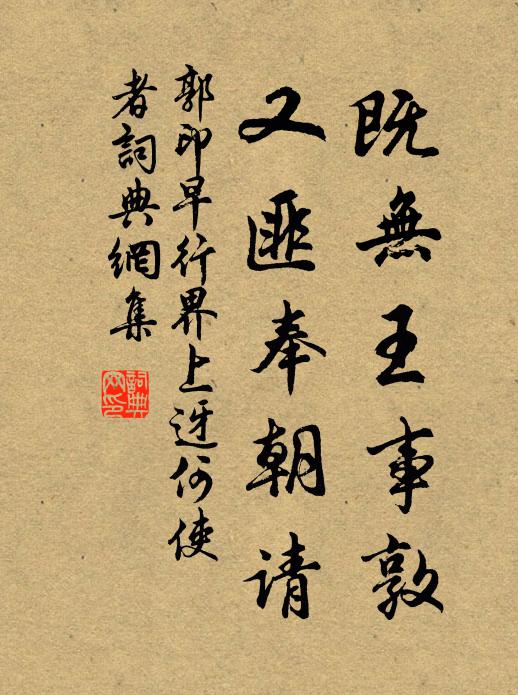 既無王事敦
又匪奉朝请
郭印早行界上迓何使
者詞典網集
詞典網印